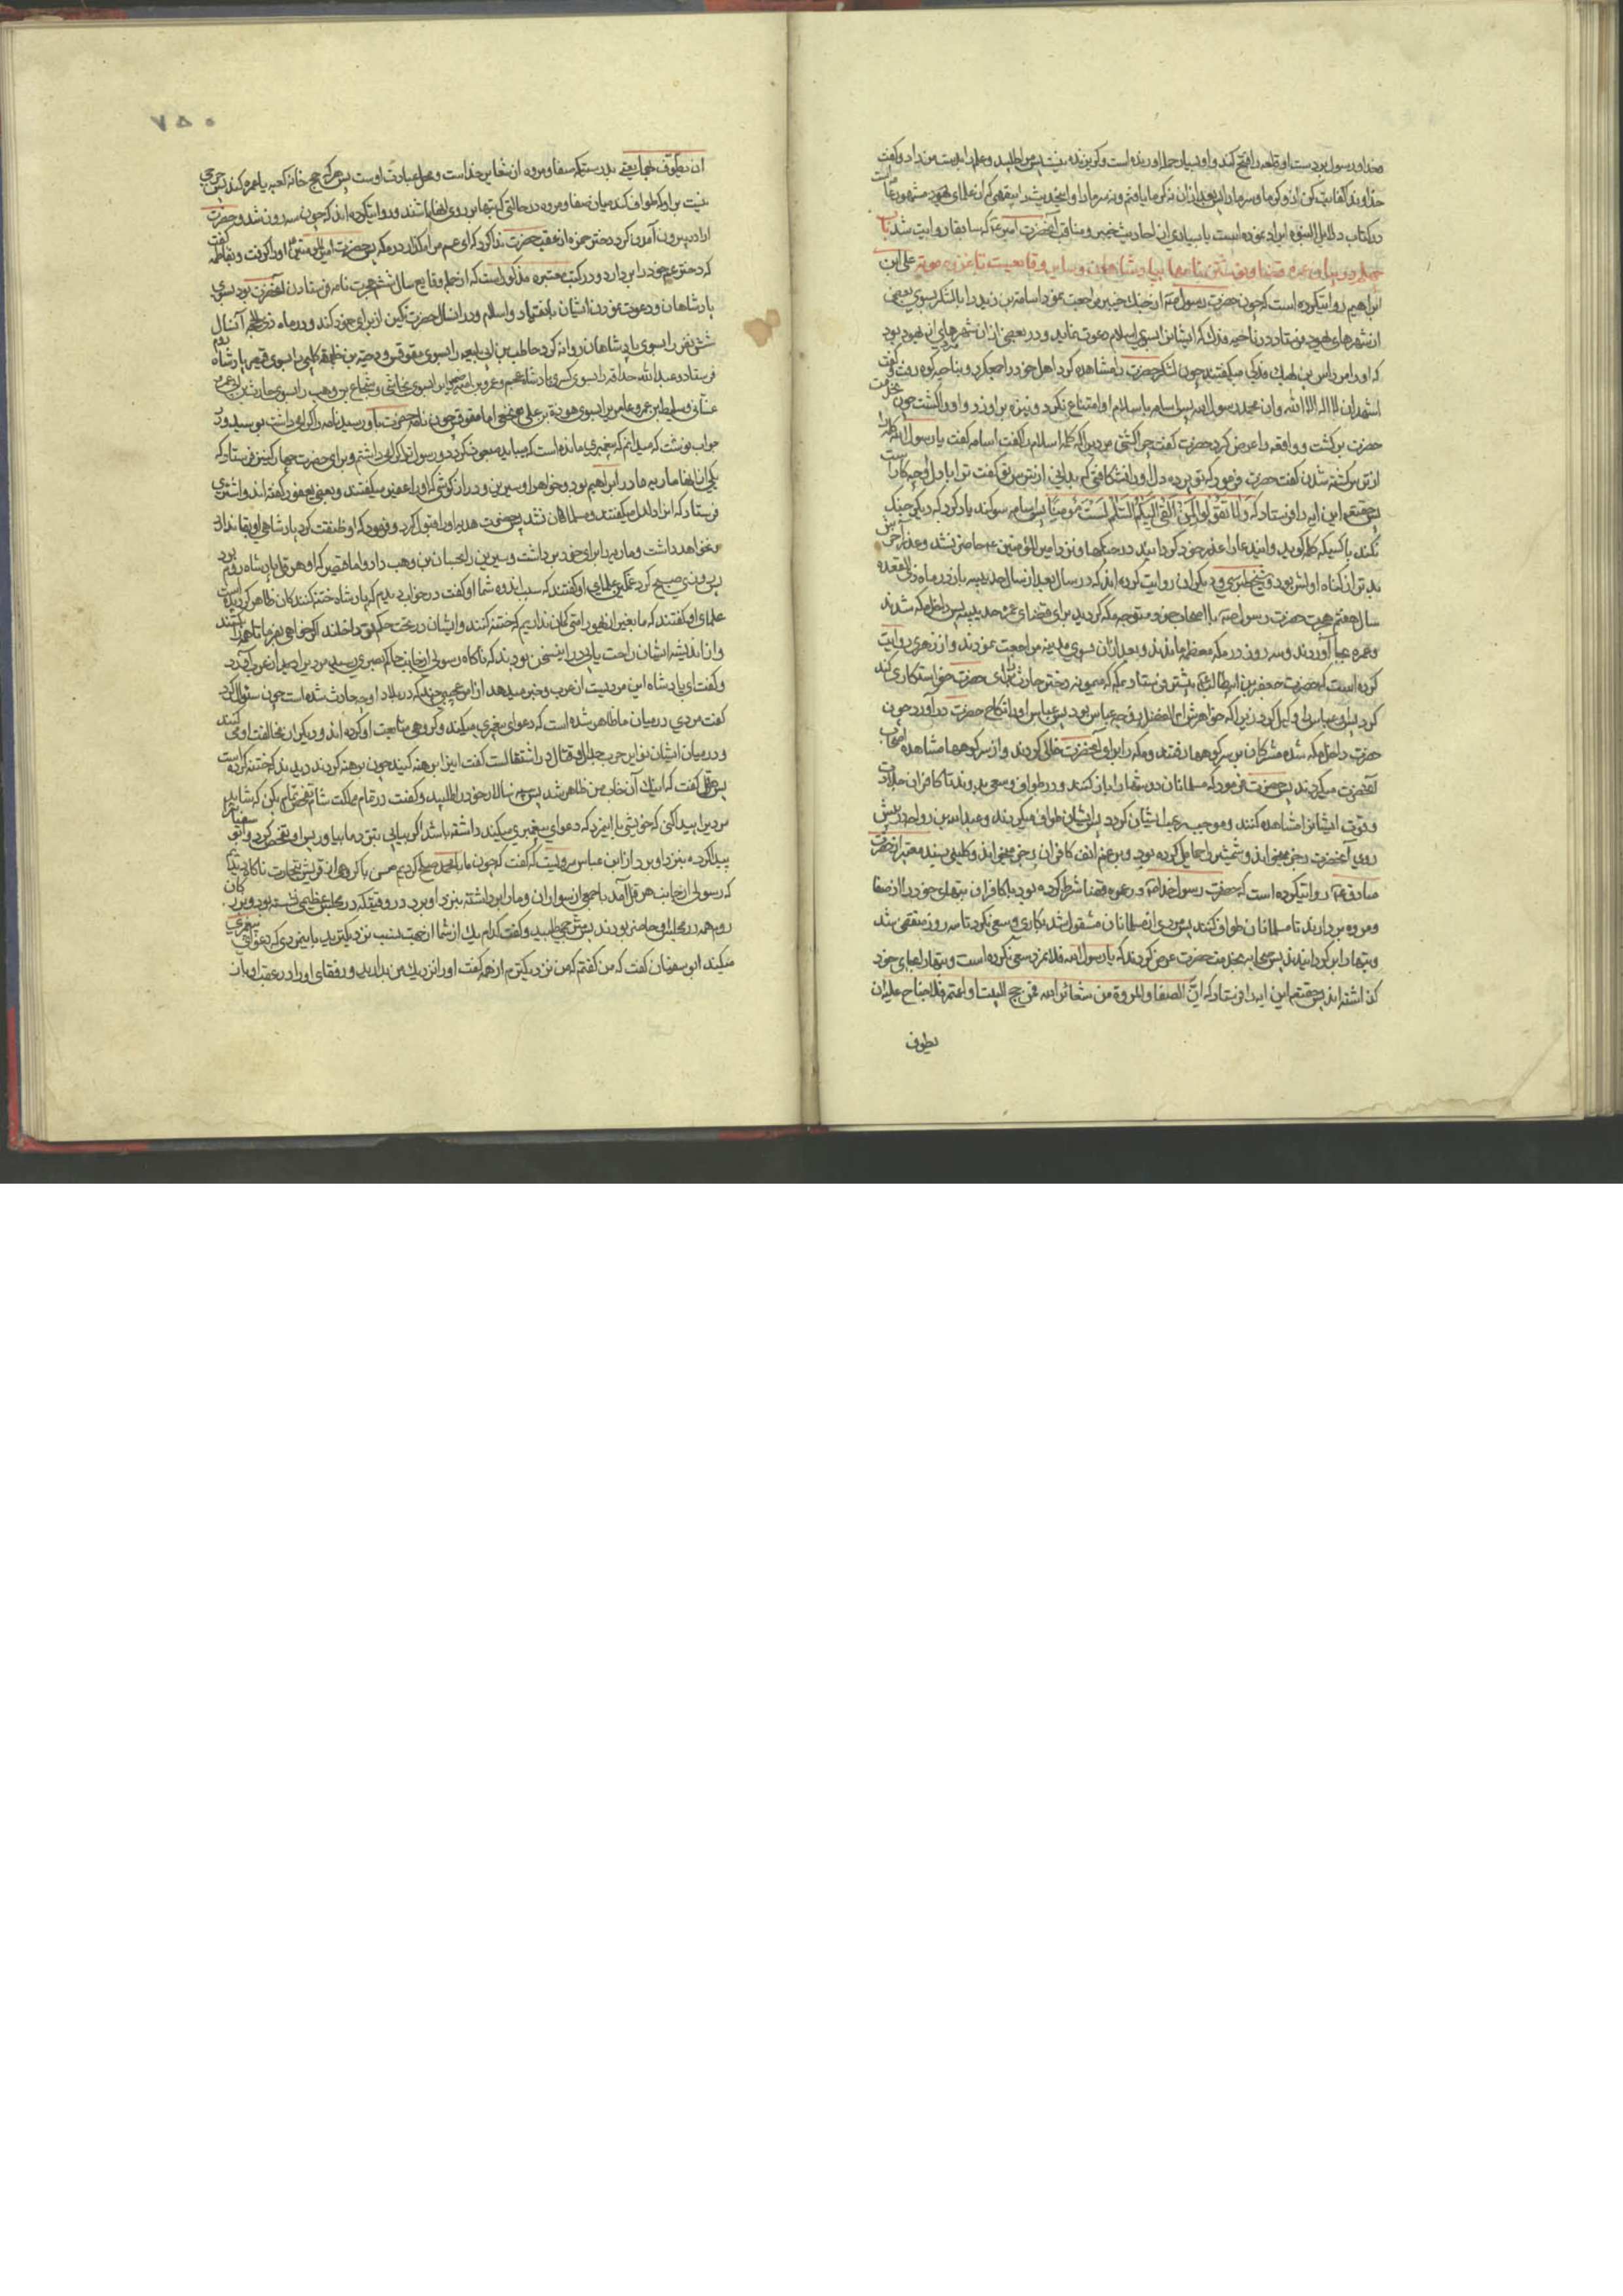 خدا و رسول بر دست او قلعه را فتح کند و او بسیار حمله آورنده است و گریزنده نیست پس مرا طلبید و علم را بدست من داد و گفت
خداوندا کفایت کن از او گرما و سرما را پس بعد از آن نه گرما یافتم و نه سرما
در کتاب دلایل النبوه ایراد نموده است با بسیاری از احادیث خیبر و مناقب آنحضرت که سابقا روایت شد باب
چهل و در بیان عمره قضا و نوشتن نامها بپادشاهان و سایر وقایعیست تا غزوه موته علی ابن
ابراهیم روایت کرده است که چون حضرت رسول ص از جنک خیبر مراجعت نمود اسامة بن زید را با لشکر بسوی بعضی
از شهرهای یهود فرستاد در ناحیه فدک که ایشان را بسوی اسلام دعوت نماید و در بعضی از آن شهرها یهودی بود
که او را مرداس بن نهیک فدکی میگفتند چون لشکر حضرت را مشاهده کرد اهل خود را جمع کرد و بناحیه کوه رفت و گفت
اشهد ان لا اله الا الله و ان محمد رسول الله پس اسامه باسلام او اعتنا نکرد و نیزه بر او زد و او را کشت چون بخدمت
حضرت برگشت و واقعه را عرض کرد حضرت گفت چرا کشتی مردیرا که کلمه اسلام را گفت اسامه گفت یا رسول الله کلمه را
از ترس کشته شدن گفت حضرت فرمود که تو پرده دل او را نشکافتی که بدانی از ترس میگفت ترا با دل او چه کار است
پس حقتعالی این آیه را فرستاد که وَلَا تَقُولُوا لِمَنْ أَلْقَى إِلَيْكُمُ السَّلَمَ لَسْتَ مُؤْمِنًا پس اسامه سوکند یاد کرد که دیگر جنک
نکند با کسیکه کلمه گوید و اینمعنی را عذر خود گردانید در جنگها و نزد امیر المؤمنین ع حاضر نشد و عذر آخرش
بدتر از گناه اولش بود و شیخ طبرسی و دیگران روایت کرده‌اند که در سال بعد از سال حدیبیه باز در ماه ذی القعده
سال هفتم هجرت حضرت رسول ص با اصحاب خود متوجه مکه گردید برای قضای عمره حدیبیه پس داخل مکه شدند
و عمره بجا آوردند و سه روز در مکه معظمه ماندند و بعد از آن بسوی مدینه مراجعت نمودند و از زهری روایت
کرده است که حضرت جعفر بن ابیطالب را پیشتر فرستاد بمکه که میمونه دختر حارث را برای حضرت خواستگاری کند
کرد پس او عباس را وکیل کرد زیرا که خواهرش ام الفضل زوجه عباس بود پس عباس او را بنکاح حضرت در آورد چون
حضرت داخل مکه شد مشرکان بر سر کوهها رفتند و مکه را برای آنحضرت خالی کردند و از سر کوهها مشاهده اصحاب
آنحضرت میکردند پس حضرت فرمود که مسلمانان دوشها را باز کنند و در طواف و سعی بدوند تا کافران جلادت
و قوت ایشانرا مشاهده کنند و موجب رعب ایشان گردد پس ایشان طواف میکردند و عبد الله بن رواحه در پیش
روی آنحضرت رجز میخواند و شمشیر را حمایل کرده بود و کلینی بسند معتبر از حضرت
صادق ع روایت کرده است که حضرت رسول خدا ص در عمره قضا شرط کرده بود با کافران که بتهای خود را از صفا
و مروه بردارند تا مسلمانان طواف کنند پس مردی از مسلمانان مشغول شد بکاری و سعی نکرد تا سه روز منقضی شد
و بتها را برگردانیدند پس صحابه بخدمت حضرت عرض کردند که یا رسول الله فلان مرد سعی نکرده است و بتها را بجای خود
گذاشته‌اند پس حقتعالی این آیه را فرستاد که ان الصفا والمروة من شعائر الله فمن حج البیت او اعتمر فلا جناح علیه ان
یطوف
۷۵۰
ان یطوف بهما یعنی بدرستیکه صفا و مروه از شعایر خداست و محل عبادت اوست پس هر که حج خانه کعبه یا عمره کند پس حرجی
نیست بر او که طواف کند میان صفا و مروه در حالتی که بتها بر روی آنها باشند و روایت کرده‌اند که چون سه روز شد و حضرت
اراده بیرون آمدن کرد دختر حمزه از عقب حضرت ندا کرد که ای عم مرا مگذار در مکه پس حضرت امیر المومنین او را گرفت و بفاطمه گفت
که دختر عم خود را بردار و در کتب معتبره مذکور است که از جمله وقایع سال ششم هجرت نامه فرستادن آنحضرت بود بسوی
پادشاهان و دعوت نمودن ایشان بانقیاد و اسلام و در آن سال حضرت نگین از برای خود کند و در ماه ذی الحجه آنسال
شش نفر را بسوی پادشاهان روانه کرد حاطب بن ابی بلتعه را بسوی مقوقس و دحیة بن خلیفه کلبی را بسوی قیصر پادشاه روم
فرستاد و عبدالله حذافه را بسوی کسری پادشاه عجم و عمرو بن امیه را بسوی نجاشی و شجاع بن وهب را بسوی حارث بن
غسانی و سلیط بن عمرو عامری را بسوی هوذة بن علی حنفی اما مقوقس چون نامه حضرت باو رسید نامه را گرامی داشت و بوسید و در
جواب نوشت که میدانم که پیغمبری مانده است که میباید مبعوث گردد و رسول ترا گرامی داشتم و برای حضرت چهار کنیز فرستاد که
یکی از آنها ماریه مادر ابراهیم بود و خواهر او سیرین و دراز گوشی که او را عفیر میگفتند و بعضی یعفور گفته‌اند و استری
فرستاد که آنرا دلدل میگفتند و مسلمان نشد پس حضرت هدیه او را قبول کرد و فرمود که پادشاهی او بقا ندارد
نخواهد داشت و ماریه را برای خود برداشت و سیرین را بحسان بن وهب داد و اما قیصر که او هرقل پادشاه روم بود
روزی صبح کرد غمگین علمای او گفتند که سبب اندوه شما گفت در خواب دیدم که پادشاه ختنه کنندگان ظاهر گردیده است
علمای او گفتند که ما بغیر از یهود امتی گمان نداریم که ختنه کنند و ایشان در تحت حکم تو داخلند اگر خواهی بفرما تا همه را بکشند
و از اندیشه ایشان راحت یابی در این سخن بودند که ناگاه رسولی از جانب حاکم بصری رسید مردیرا از عرب آورد
و گفت ای پادشاه این مردیست از عرب و خبر میدهد از امر عجیبی چند که در بلاد او حادث شده است چون سئوال کرد
گفت مردی در میان ما ظاهر شده است که دعوای پیغمبری میکند و گروهی متابعت او کرده‌اند و دیگران مخالفت او می کنند
و در میان ایشان نوایر حرب و جدال و قتال در اشتعالست گفت اینرا برهنه کنید چون برهنه کردند دیدند که ختنه کرده است
پس هرقل گفت که اینک آن خواب من ظاهر شد پس سپه سالار خود را طلبید و گفت در تمام مملکت شام تفحص تمام بکن که شاید
مردیرا پیدا کنی که خویشی با اینمرد که دعوای پیغمبری میکند داشته باشد اگر بیابی بنزد ما بیاور پس او تفحص کرد و ابو سفیان را
پیدا کرد و بنزد او برد از ابن عباس مرویست که گفت که چون ما با محمد صلح کردیم من با گروهی از قریش بتجارت
که رسولی از جانب هرقل آمد با جمعی از سواران و ما را برداشته بنزد او برد در وقتیکه در مجلس عظیمی نشسته بود و بزرگان
روم همه در مجلس او حاضر بودند پس ترجمانی طلبید و گفت کدام یک از شما از جهت نسب نزدیکترید باینمردی که دعوای پیغمبری
میکند ابو سفیان گفت که من گفتم که من نزدیکترم از همه گفت او را نزدیک من بدارید و رفقای او را در عقب او باز